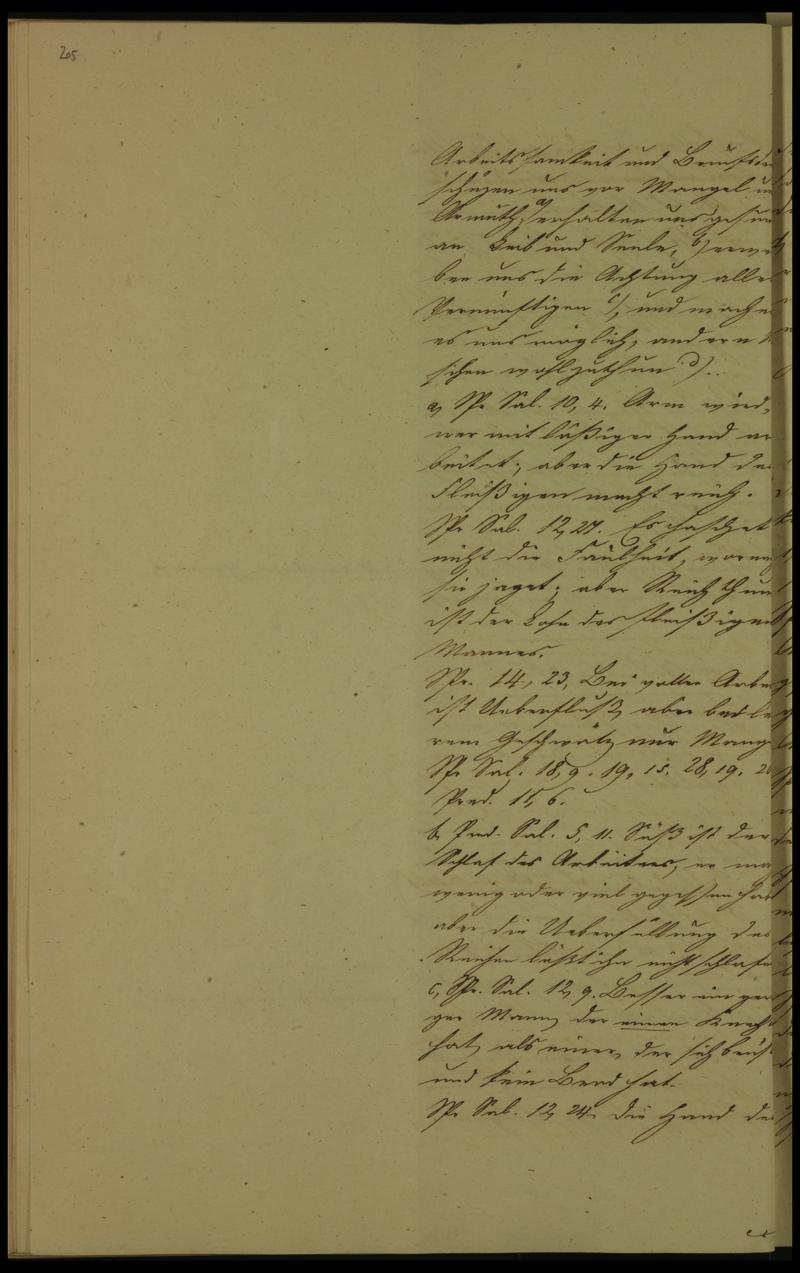 205
Arbeitsamkeit und Berufs
schüzen uns vor Mangel
Armuth, a) erhalten uns gesun
an Leib und Seele, b) erwe
ben uns die Achtung alle
Vernünftigen c), und mache
es uns möglich, andern
schen wohlzuthun d)..
a, Spr. Sal. 10, 4. Arm wird,
wer mit läßiger Hand ar
beitet; aber die Hand de
Fleißigen macht reich.
Spr. Sal. 12, 27. Es haschet
nicht die Faulheit, wornach
sie jaget; aber Reichthum
ist der Loos des fleißigen
Mannes.
Spr. 14, 23, Bei voller Arbe
ist Ueberfluß, aber bei le
rem Geschwätz nur Mang
Spr. Sal. 18, 9. 19, 15. 28, 19. 2
Pred. 11, 6.
b, Pred. Sal. 5, 11. Süß ist der
Schlaf des Arbeiters, er ma
wenig oder viel gegessen hab
aber die Ueberfüllung des
Reichen läßt ihn nicht schlafe
c, Spr. Sal. 12, 9. Besser ein gerin
ger Mann, der einen Knecht
hat, als einer, der sich brüs
und kein Brod hat.
Spr. Sal. 12, 24. Die Hand de